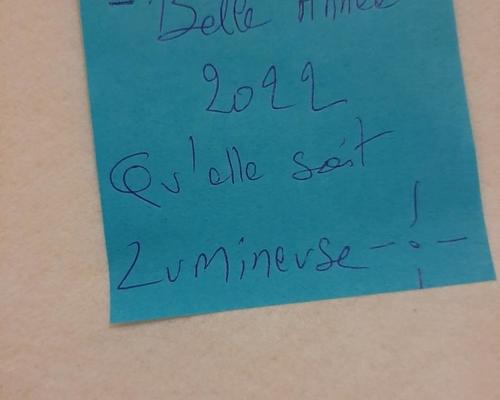 - Belle Année
2022
Qu'elle soit
Lumineuse - ! -